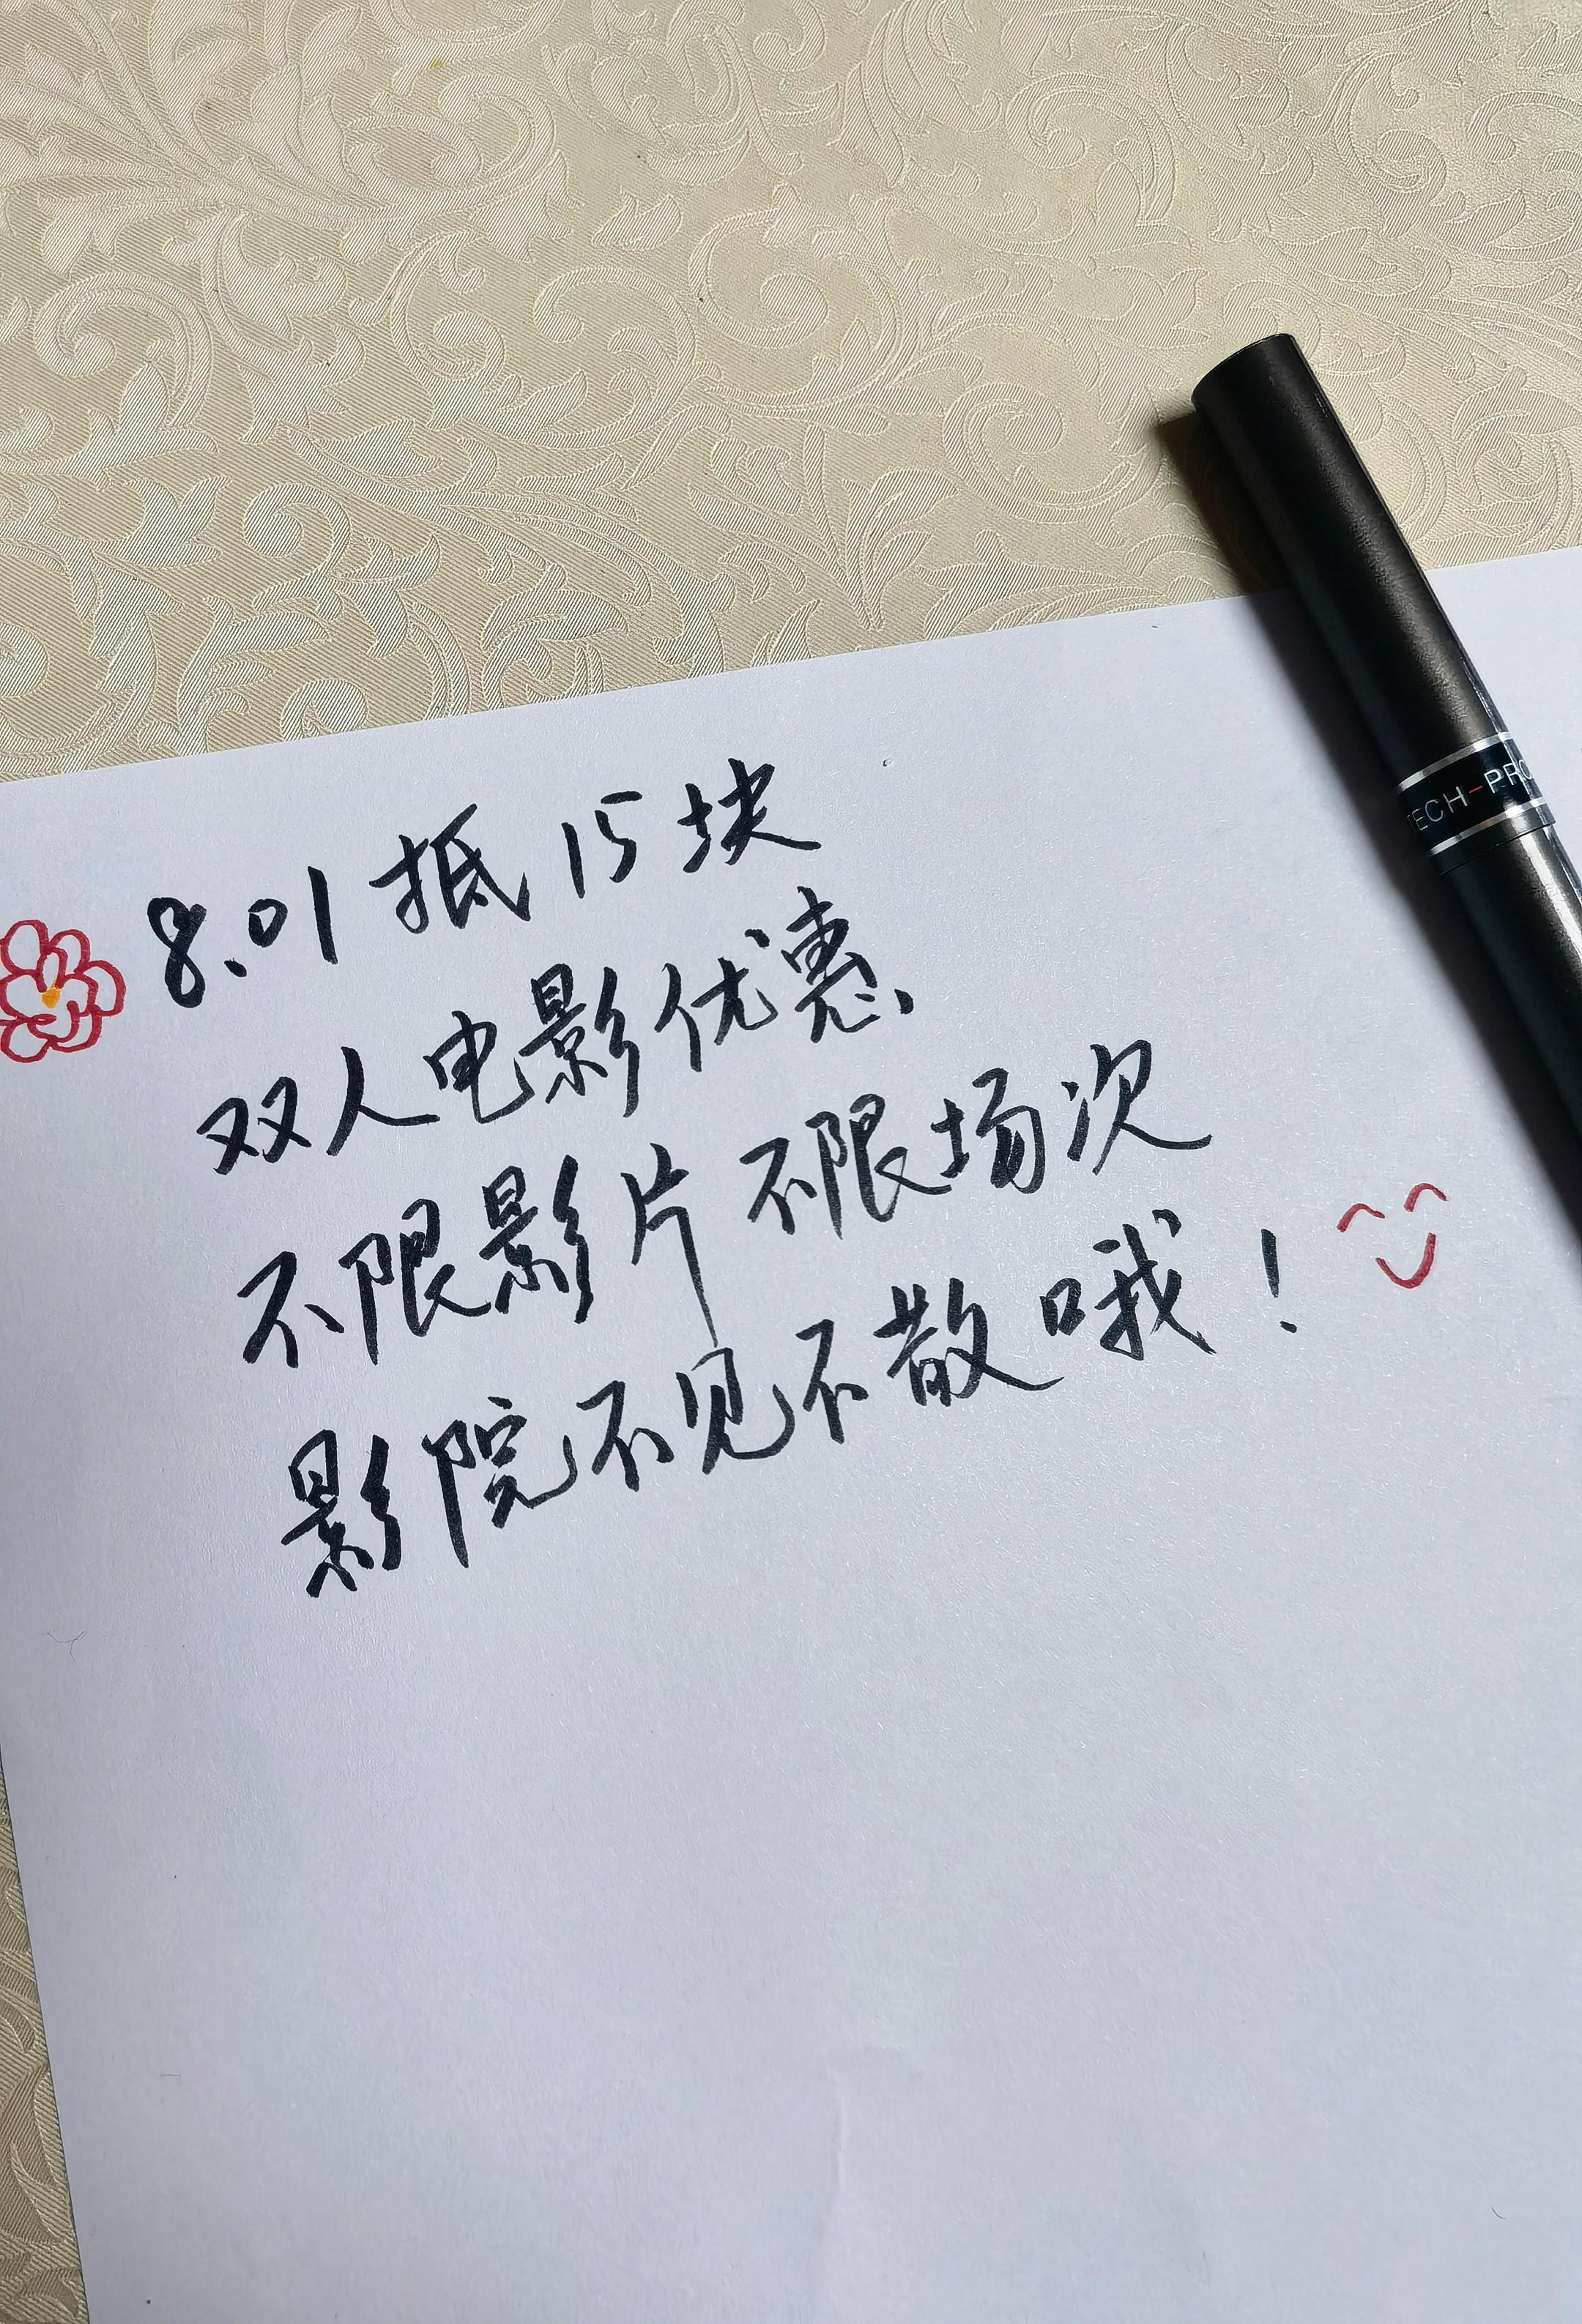 8.01抵15块
双人电影优惠、
不限影片 不限场次
影院不见不散哦！
TECH-PRO